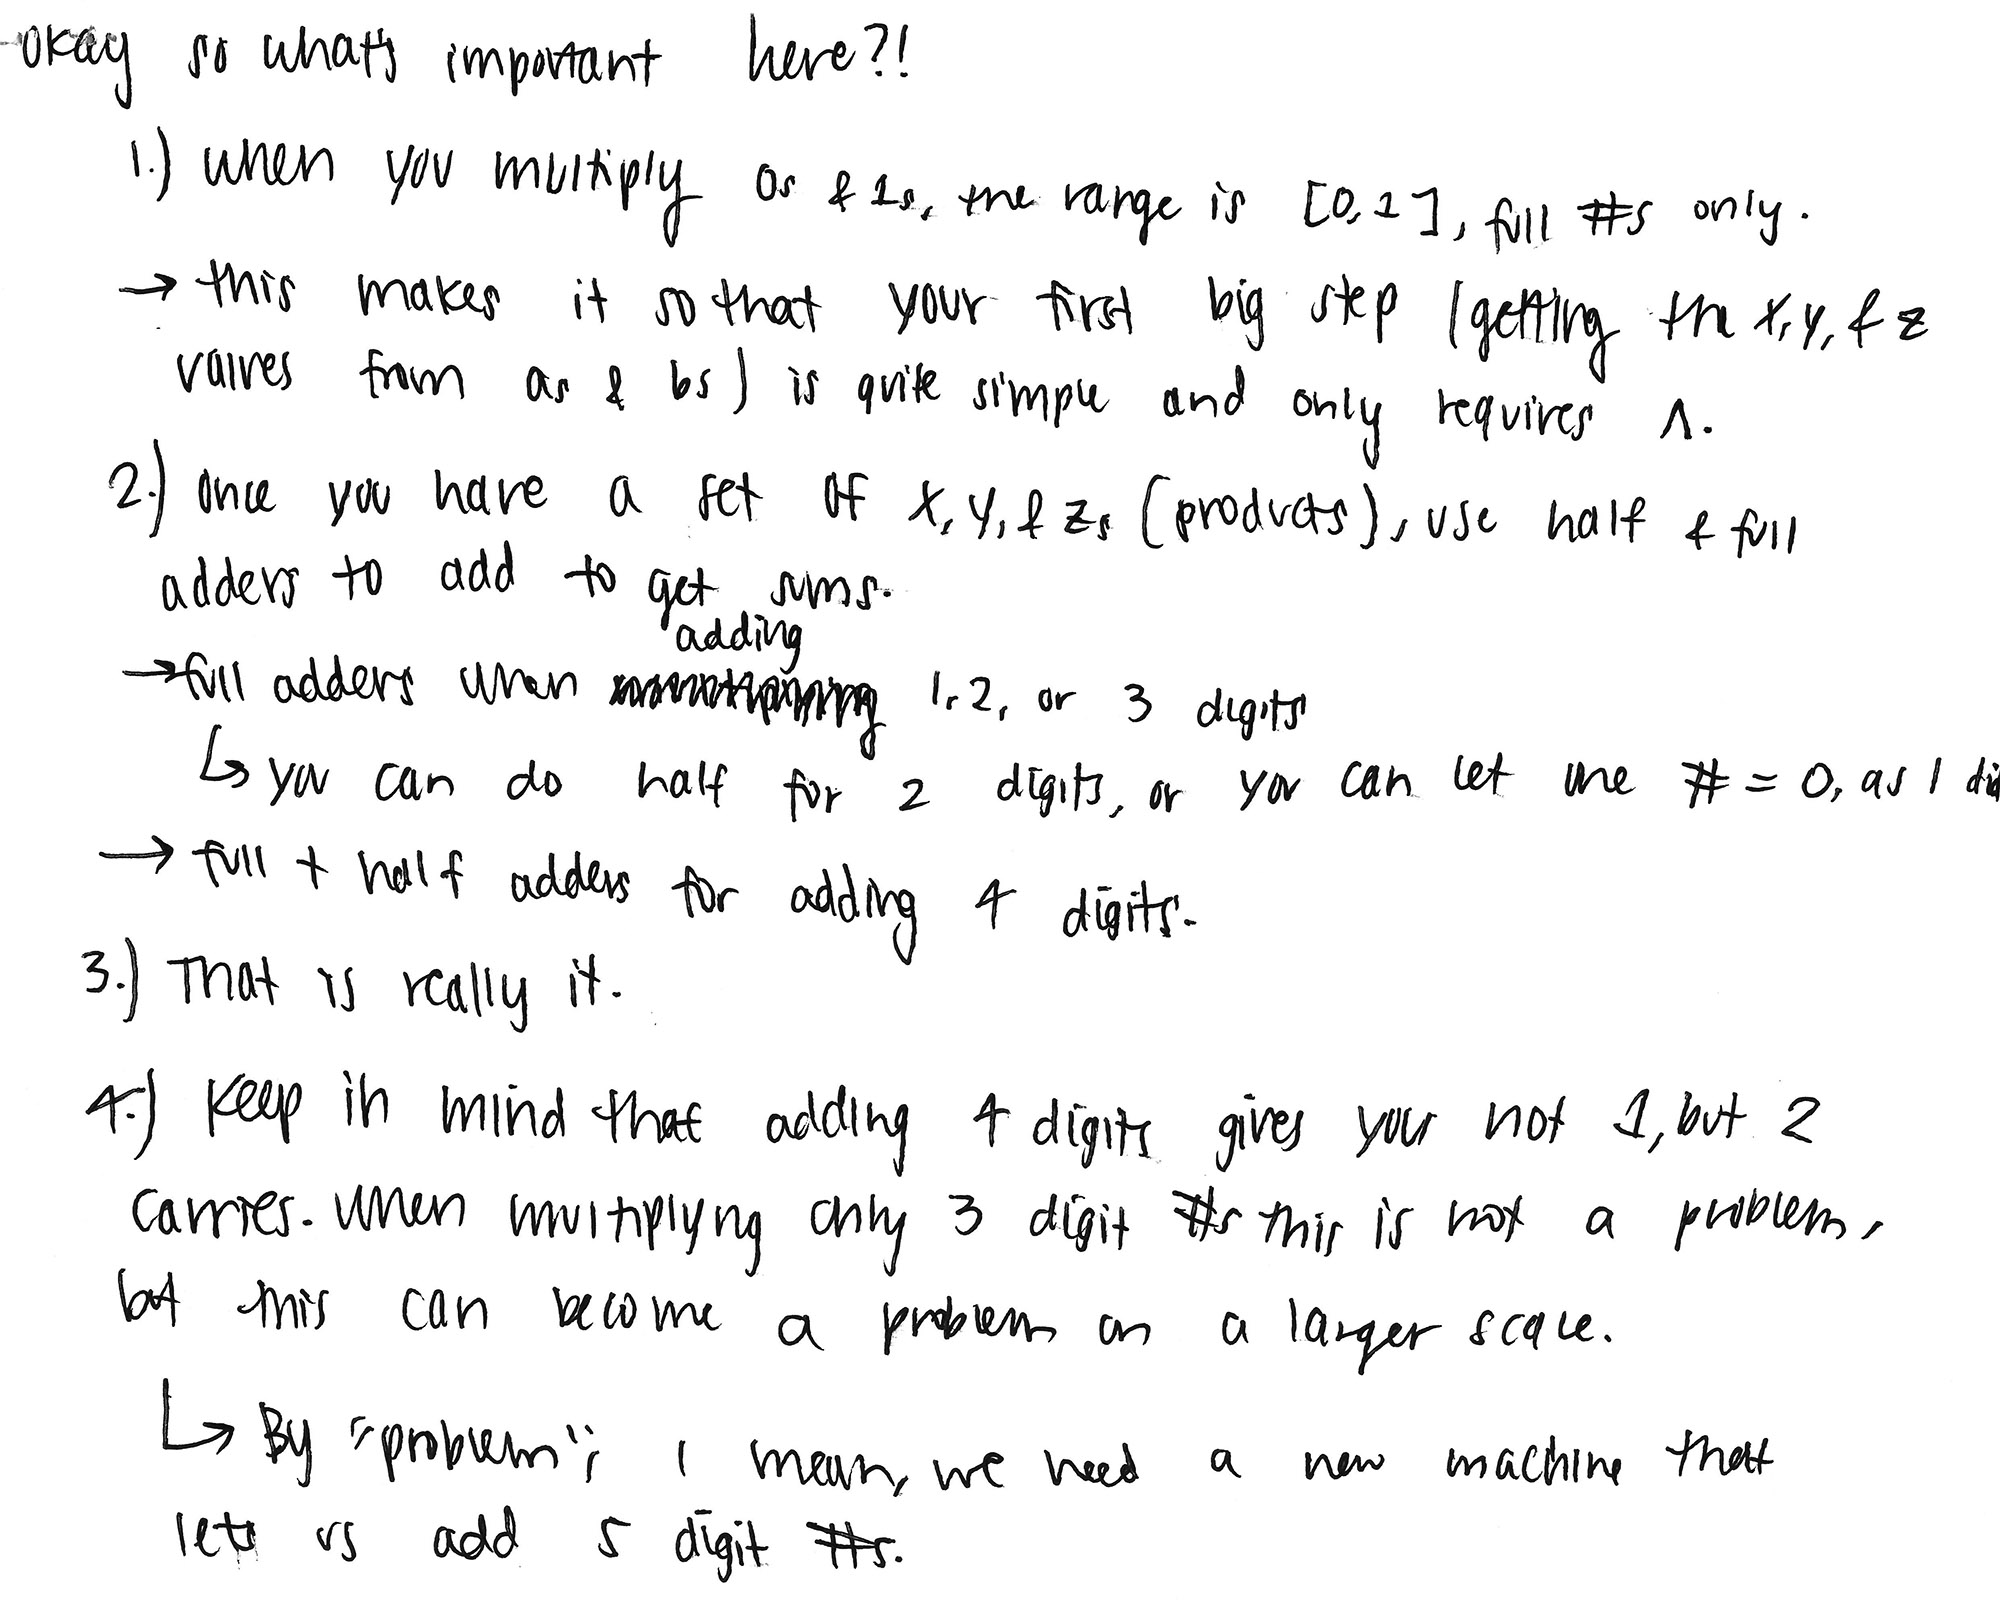 okay so what's important here?!
1.) when you multiply 0s & 1s, the range is [0,1], full #s only.
→ this makes it so that your first big step (getting the x, y, & z
values from as & bs) is quite simple and only requires ∧.
2.) once you have a set of x, y, & zs (products), use half & full
adders to add to get sums.
adding
→ full adders when 1, 2, or 3 digits
↳ you can do half for 2 digits, or you can let one # = 0, as I did
→ full + half adders for adding 4 digits.
3.) That is really it.
4.) Keep in mind that adding 4 digits gives you not 1, but 2
carries. When multiplying only 3 digit #s this is not a problem,
but this can become a problem on a larger scale.
↳ By "problem", I mean, we need a new machine that
lets us add 5 digit #s.